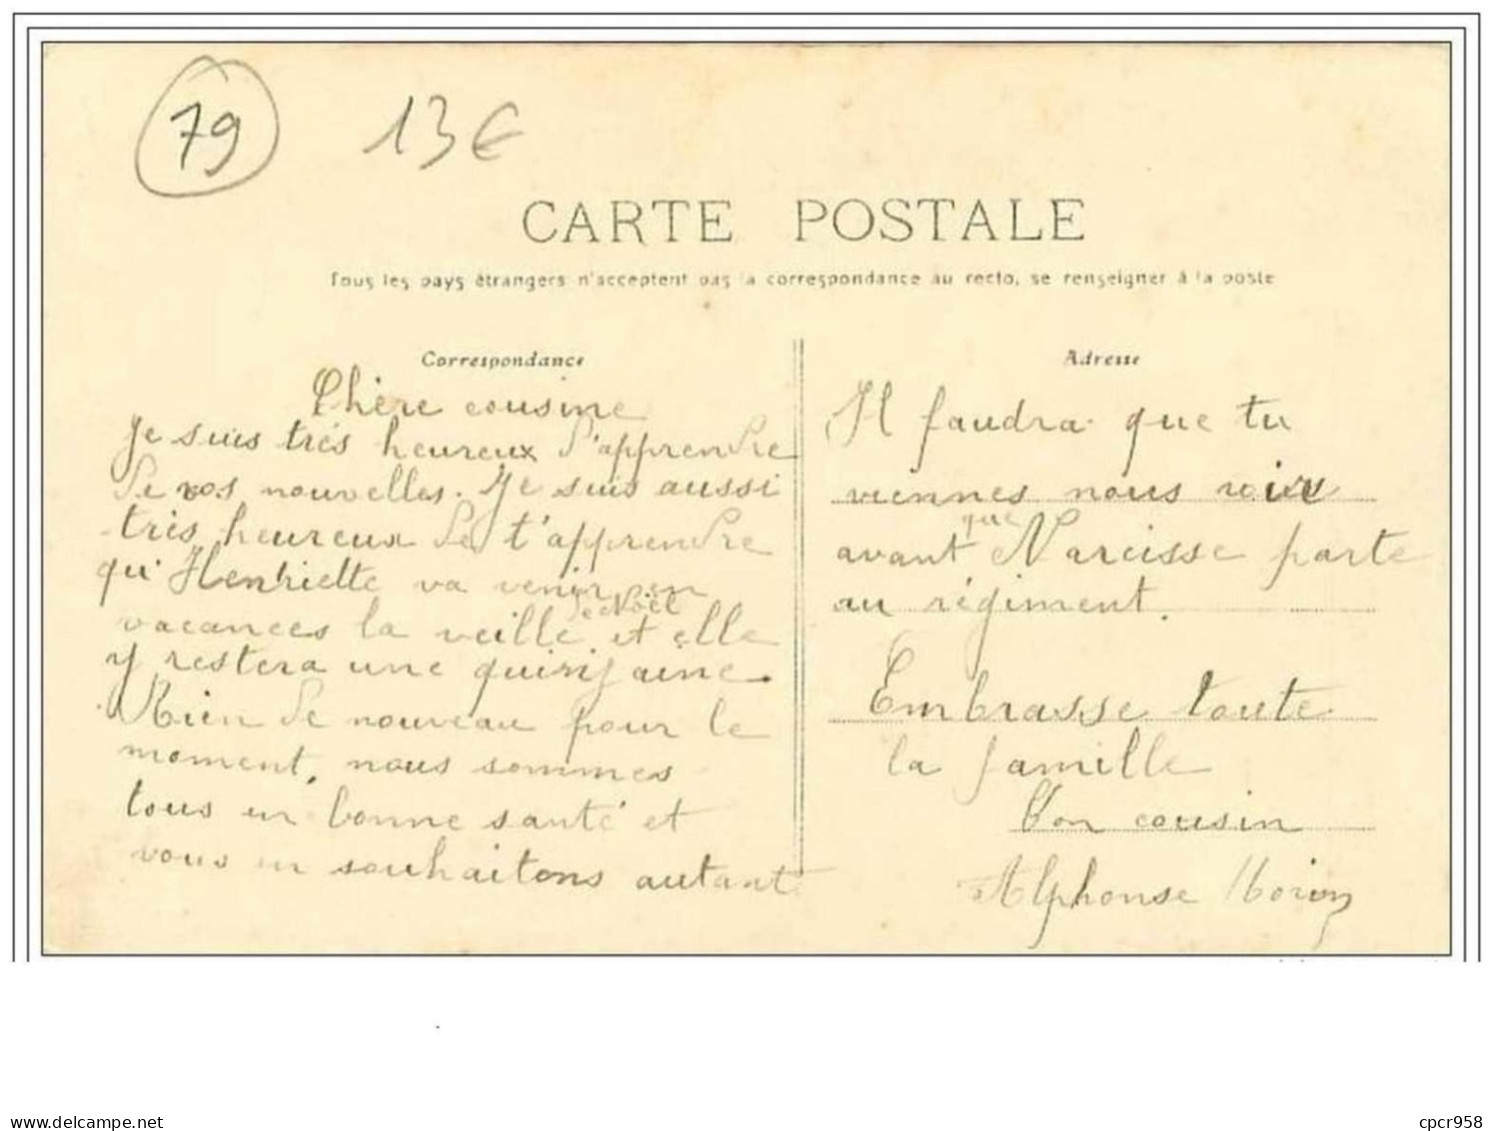 79 13€
CARTE POSTALE
Tous les pays étrangers n'acceptent pas la correspondance au recto, se renseigner à la poste
Correspondance
Chère cousine
Je suis très heureux d'apprendre
de vos nouvelles. Je suis aussi
très heureux de t'apprendre
qu'Henriette va venir en
vacances la veille de Noël et elle
y restera une quinzaine.
Rien de nouveau pour le
moment, nous sommes
tous en bonne santé et
vous en souhaitons autant
Adresse
Il faudra que tu
viennes nous voir
avant que Narcisse parte
au régiment.
Embrasse toute
la famille
Ton cousin
Alphonse
cpcr958